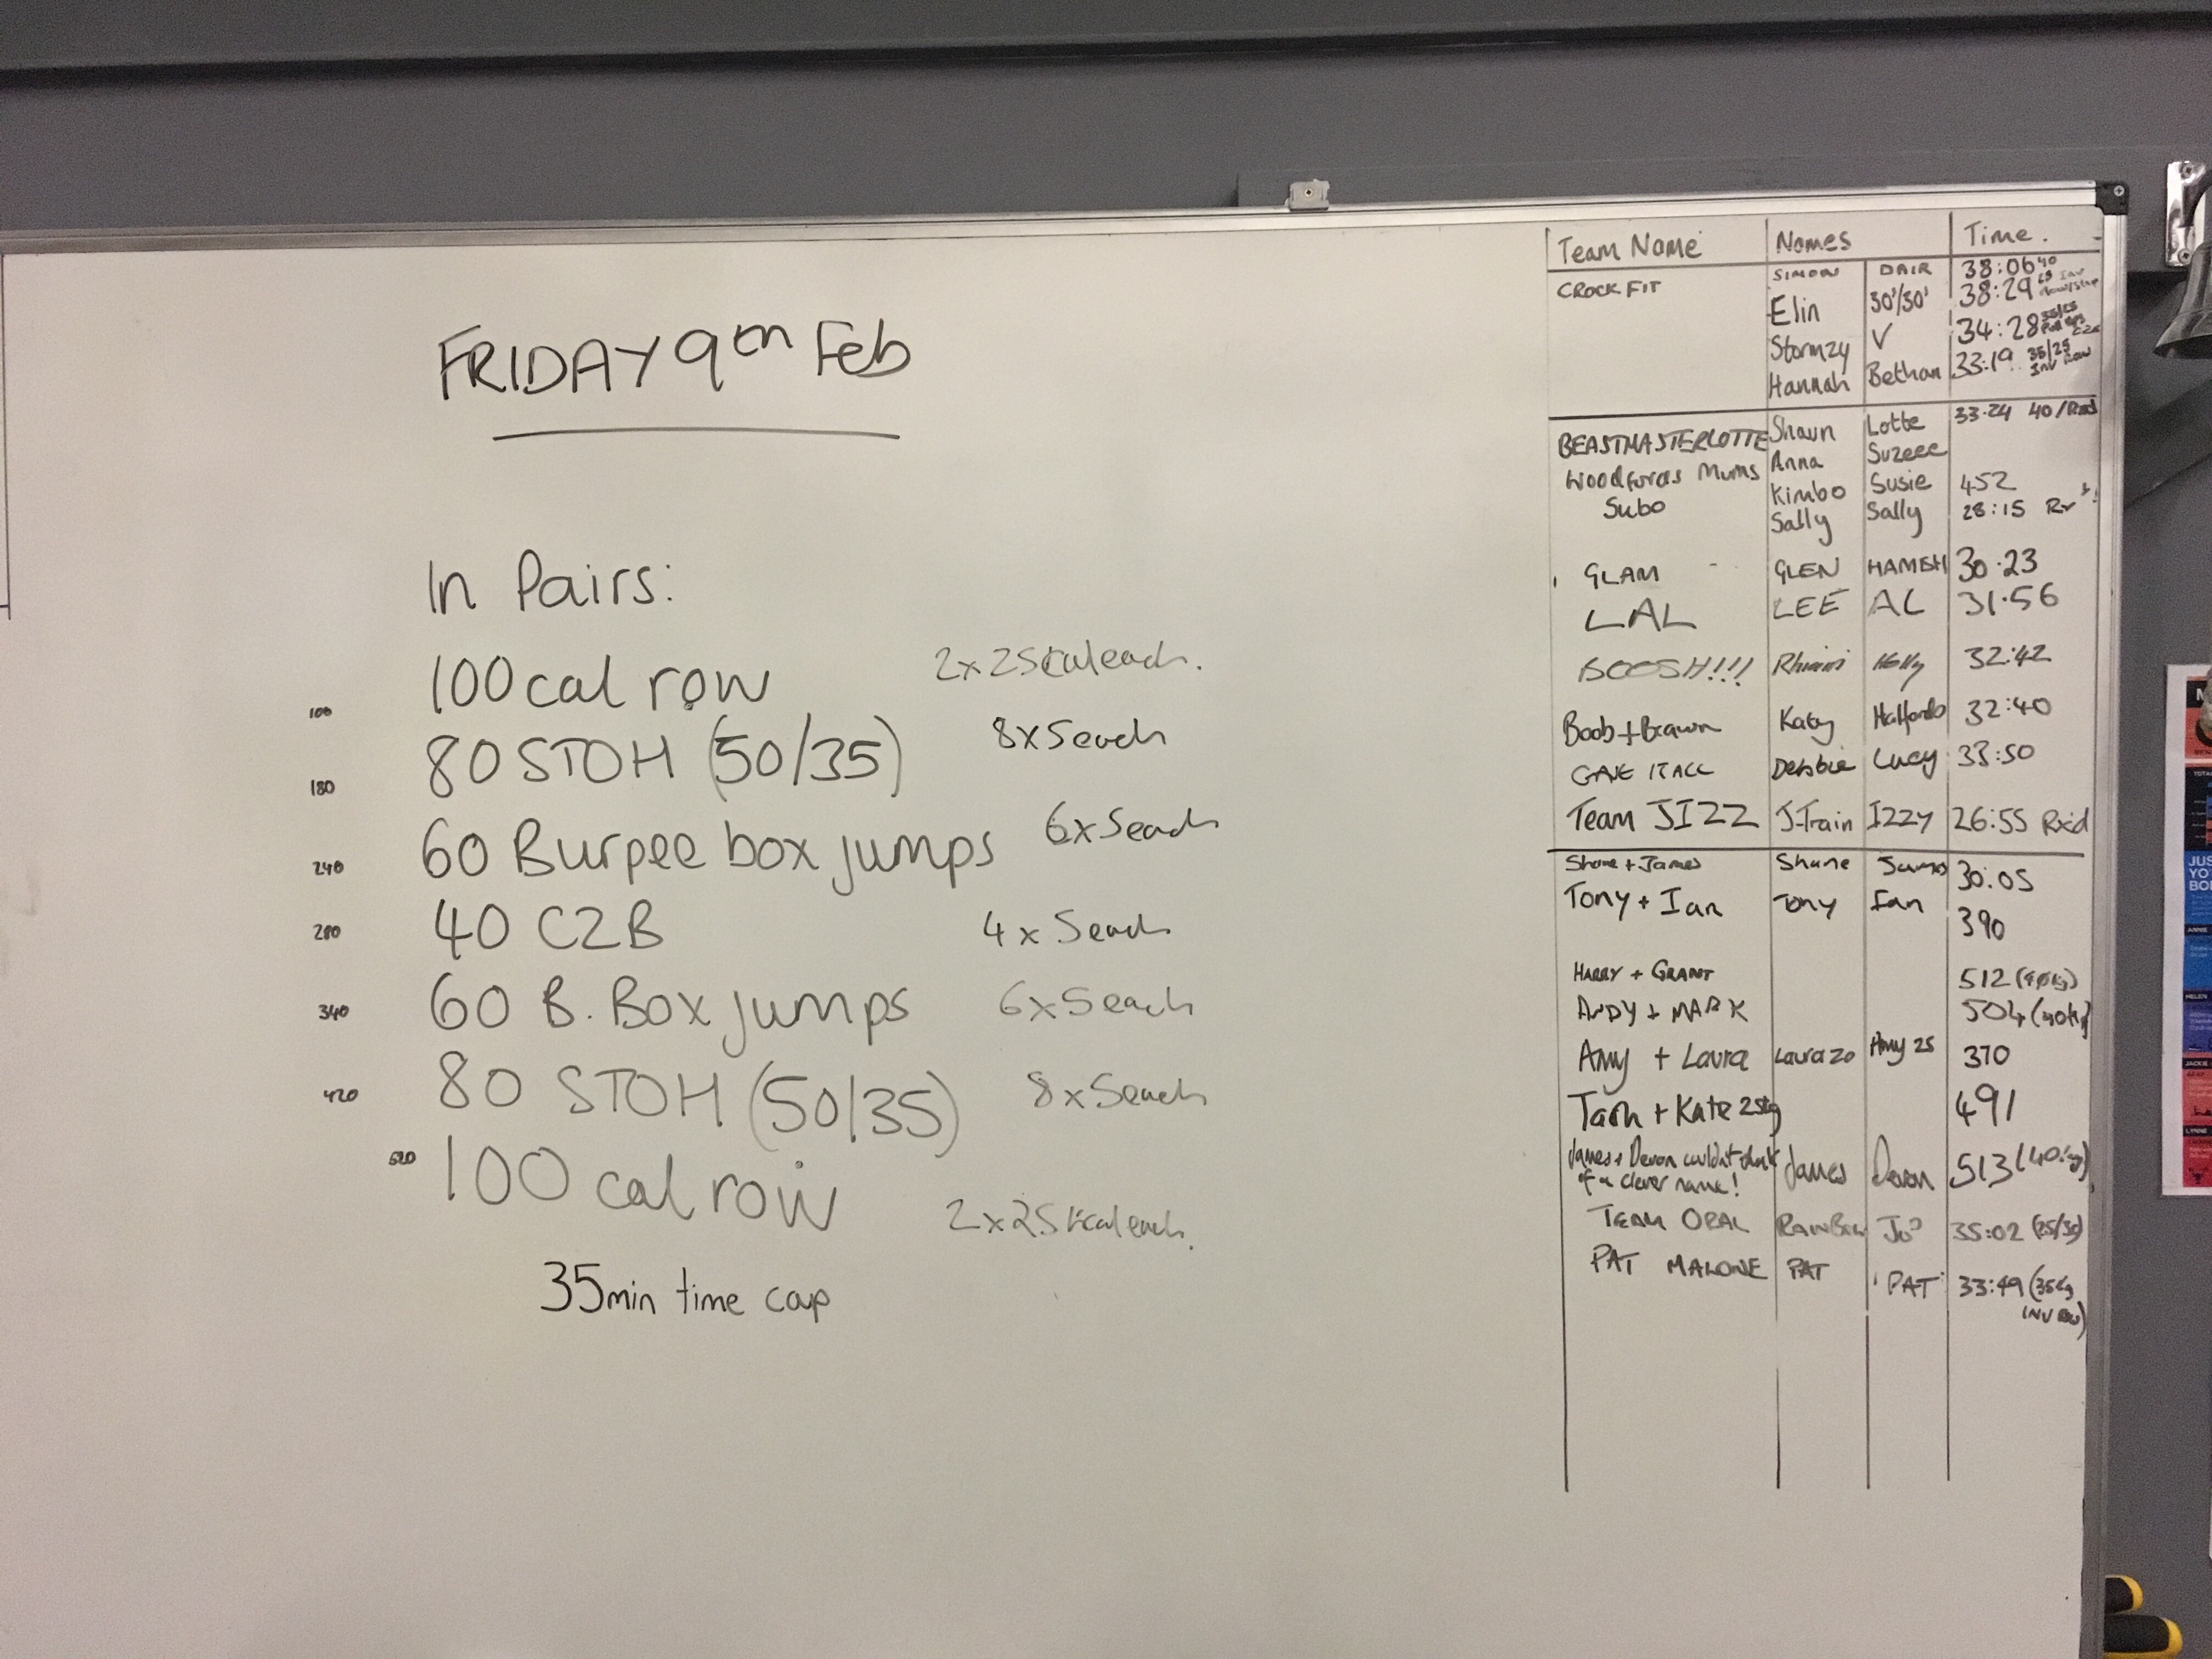 FRIDAY 9th Feb
In Pairs:
100 cal row 2x25kcal each.
100
80 STOH (50/35) 8x5each
180
60 Burpee box jumps 6x5each
240
40 C2B 4x5each
280
60 B. Box jumps 6x5each
340
80 STOH (50/35) 8x5each
420
100 cal row 2x25kcal each.
520
35min time cap
Team Name Names Time.
CROCKFIT SIMON DAIR 38:06 40
Elin 50'/50' 38:29
Stormzy V 34:28
Hannah Bethan 33:19 35/25 Inv Row
BEASTMASTERLOTTE Shaun Lotte 33.24 40/Red
Woodfords Mums Anna Suzeee
Subo Kimbo Susie 452
Sally Sally 28:15
GLAM GLEN HAMISH 30.23
LAL LEE AL 31.56
BOOSH!!! Holly 32:42
Boob+Brawn Katy Halfords 32:40
GAVE IT ALL Debbie Lucy 33:50
Team JIZZ J-Train IZZY 26:55 Rx'd
Shane + James Shane James 30.05
Tony + Ian Tony Ian 390
HARRY + GRANT 512 (40kg)
ANDY + MARK 504 (40kg)
Amy + Laura Laura 20 Amy 25 370
Tash + Kate 25kg 491
James + Devon couldn't think of a clever name! James Devon 513 (40kg)
TEAM ORAL RAINBOW JO 35:02 (25/35)
PAT MALONE PAT 'PAT' 33:49 (35kg INV ROW)